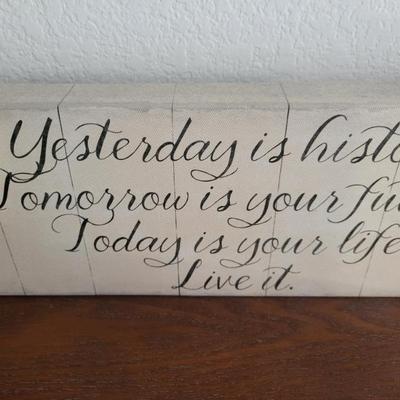 Yesterday is histo
Tomorrow is your fu
Today is your life
Live it.